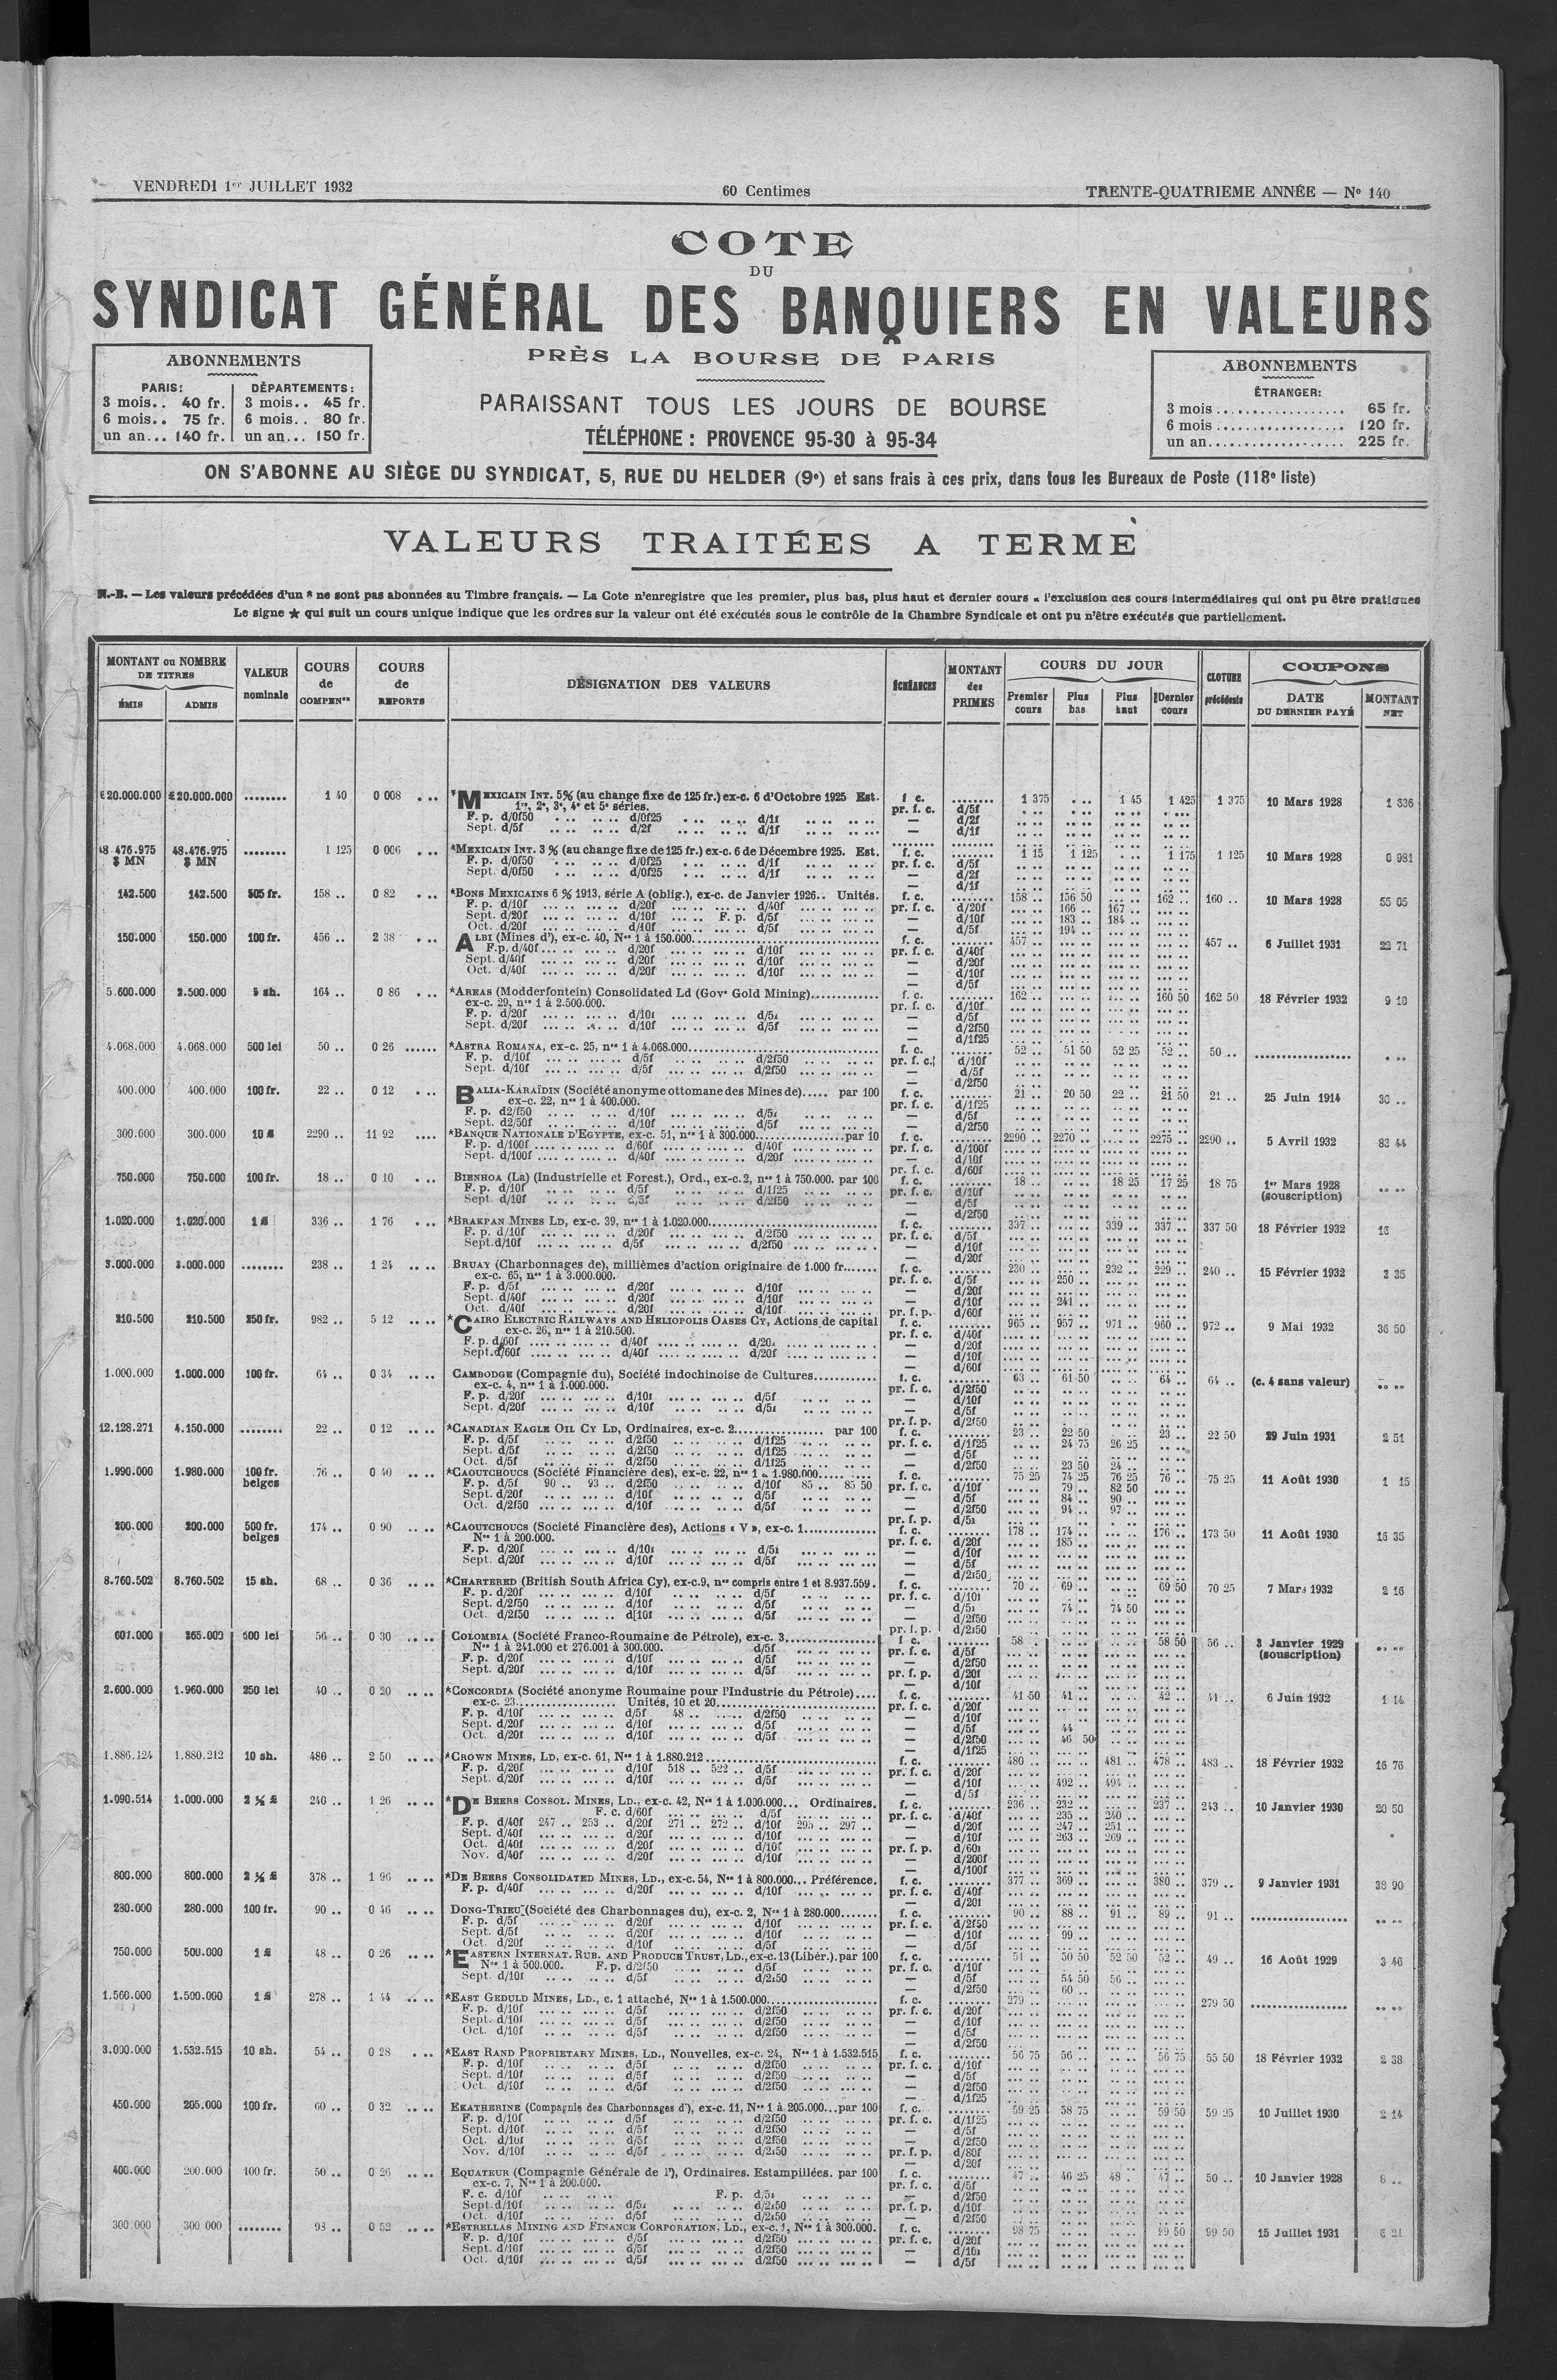 VENDREDI 1er JUILLET 1932
60 Centimes
TRENTE-QUATRIEME ANNÉE — No 140
COTE
DU
SYNDICAT GÉNÉRAL DES BANQUIERS EN VALEURS
PRÈS LA BOURSE DE PARIS
PARAISSANT TOUS LES JOURS DE BOURSE
TÉLÉPHONE : PROVENCE 95-30 à 95-34
ABONNEMENTS
PARIS: DÉPARTEMENTS:
3 mois.. 40 fr. 3 mois.. 45 fr.
6 mois.. 75 fr. 6 mois.. 80 fr.
un an... 140 fr. un an... 150 fr.
ABONNEMENTS
ÉTRANGER:
3 mois .................. 65 fr.
6 mois .................. 120 fr.
un an.................. 225 fr.
ON S'ABONNE AU SIÈGE DU SYNDICAT, 5, RUE DU HELDER (9e) et sans frais à ces prix, dans tous les Bureaux de Poste (118e liste)
VALEURS TRAITÉES A TERME
N.-B. — Les valeurs précédées d'un * ne sont pas abonnées au Timbre français. — La Cote n'enregistre que les premier, plus bas, plus haut et dernier cours à l'exclusion des cours intermédiaires qui ont pu être pratiqués
Le signe ★ qui suit un cours unique indique que les ordres sur la valeur ont été exécutés sous le contrôle de la Chambre Syndicale et ont pu n'être exécutés que partiellement.
MONTANT ou NOMBRE DE TITRES
ÉMIS ADMIS
VALEUR nominale
COURS de COMPENon
COURS de REPORTS
DÉSIGNATION DES VALEURS
ÉCHÉANCES
MONTANT des PRIMES
COURS DU JOUR
Premier cours Plus bas Plus haut Dernier cours
CLOTURE précédente
COUPONS
DATE DU DERNIER PAYÉ MONTANT NET
£20.000.000 £20.000.000 ........ 1 40 0 008 *MEXICAIN INT. 5% (au change fixe de 125 fr.) ex-c. 6 d'Octobre 1925 Est. f. c. 1 375 1 45 1 425 1 375 10 Mars 1928 1 636
1re, 2e, 3e, 4e et 5e séries.
F. p. d/0f50 d/0f25 d/1f
Sept. d/5f d/2f d/1f
48.476.975 $ MN 48.476.975 $ MN ........ 1 125 0 006 *MEXICAIN INT. 3 % (au change fixe de 125 fr.) ex-c. 6 de Décembre 1925. Est. f. c. 1 15 1 125 1 175 1 125 10 Mars 1928 0 981
F. p. d/0f50 d/0f25 d/1f
Sept. d/0f50 d/0f25 d/1f
142.500 142.500 505 fr. 158 .. 0 82 *BONS MEXICAINS 6 % 1913, série A (oblig.), ex-c. de Janvier 1926.. Unités. f. c. 158 .. 156 50 162 .. 160 .. 10 Mars 1928 55 05
F. p. d/10f d/20f d/40f pr. f. c. d/20f 166 .. 167 ..
Sept. d/20f d/10f F. p. d/5f — d/10f 183 .. 184 ..
Oct. d/20f d/10f d/5f — d/5f 194 ..
150.000 150.000 100 fr. 456 .. 2 38 ALBI (Mines d'), ex-c. 40, Nos 1 à 150.000 f. c. 457 .. 457 .. 6 Juillet 1931 22 71
F.p. d/40f d/20f d/10f pr. f. c. d/40f
Sept. d/40f d/20f d/10f — d/20f
Oct. d/40f d/20f d/10f — d/10f
5.600.000 2.500.000 5 sh. 164 .. 0 86 *AREAS (Modderfontein) Consolidated Ld (Govt Gold Mining) f. c. 162 .. 160 50 162 50 18 Février 1932 9 10
ex-c. 29, nos 1 à 2.500.000. pr. f. c. d/10f
F. p. d/20f d/10f d/5f
Sept. d/20f d/10f d/5f — d/2f50
4.068.000 4.068.000 500 lei 50 .. 0 26 *ASTRA ROMANA, ex-c. 25, nos 1 à 4.068.000 f. c. 52 .. 51 50 52 25 52 .. 50 ..
F. p. d/10f d/5f d/2f50 pr. f. c. d/10f
Sept. d/10f d/5f d/2f50 — d/5f
400.000 400.000 100 fr. 22 .. 0 12 BALIA-KARAÏDIN (Société anonyme ottomane des Mines de)..... par 100 f. c. 21 .. 20 50 22 .. 21 50 21 .. 25 Juin 1914 30 ..
ex-c. 22, nos 1 à 400.000. pr. f. c. d/1f25
F. p. d2/f50 d/10f d/5f
Sept. d2/50f d/10f d/5f — d/2f50
300.000 300.000 10 £ 2290 .. 11 92 *BANQUE NATIONALE D'EGYPTE, ex-c. 51, nos 1 à 300.000 par 10 f. c. 2290 .. 2270 .. 2275 .. 2290 .. 5 Avril 1932 83 44
F. p. d/100f d/60f d/40f pr. f. c. d/100f
Sept. d/100f d/40f d/20f — d/10f
750.000 750.000 100 fr. 18 .. 0 10 BIENHOA (La) (Industrielle et Forest.), Ord., ex-c. 2, nos 1 à 750.000. par 100 f. c. 18 .. 18 25 17 25 18 75 1er Mars 1928 (souscription)
F. p. d/10f d/5f d/1f25 pr. f. c. d/10f
Sept. d/10f d/5f d/2f50 — d/5f
1.020.000 1.020.000 1 £ 336 .. 1 76 *BRAKPAN MINES LD, ex-c. 39, nos 1 à 1.020.000 f. c. 337 .. 339 .. 337 .. 337 50 18 Février 1932 16
F. p. d/10f d/20f d/2f50 pr. f. c. d/5f
Sept. d/10f d/5f d/2f50 — d/10f
3.000.000 3.000.000 ........ 238 .. 1 24 BRUAY (Charbonnages de), millièmes d'action originaire de 1.000 fr. f. c. 230 .. 232 .. 229 .. 240 .. 15 Février 1932 3 35
ex-c. 65, nos 1 à 3.000.000. pr. f. c. d/5f 250 ..
F. p. d/5f d/20f d/10f — d/20f
Sept. d/40f d/20f d/10f — d/10f 241 ..
Oct. d/40f d/20f d/10f pr. f. p. d/60f
210.500 210.500 250 fr. 982 .. 5 12 *CAIRO ELECTRIC RAILWAYS AND HELIOPOLIS OASES CY, Actions de capital f. c. 965 .. 957 .. 971 .. 960 .. 972 .. 9 Mai 1932 36 50
ex-c. 26, nos 1 à 210.500. pr. f. c. d/40f
F. p. d/60f d/40f d/20f — d/20f
Sept. d/60f d/40f d/20f — d/10f
1.000.000 1.000.000 100 fr. 64 .. 0 34 CAMBODGE (Compagnie du), Société indochinoise de Cultures f. c. 63 .. 61 50 64 .. 64 .. (c. 4 sans valeur)
ex-c. 4, nos 1 à 1.000.000. pr. f. c. d/2f50
F. p. d/20f d/10f d/5f — d/10f
Sept. d/20f d/10f d/5f — d/5f
12.128.271 4.150.000 ........ 22 .. 0 12 *CANADIAN EAGLE OIL CY LD, Ordinaires, ex-c. 2 par 100 f. c. 23 .. 22 50 23 .. 22 50 29 Juin 1931 2 51
F. p. d/5f d/2f50 d/1f25 pr. f. c. d/1f25 24 75 26 25
Sept. d/5f d/2f50 d/1f25 — d/5f
Oct. d/5f d/2f50 d/1f25 — d/2f50 23 50 24 ..
1.990.000 1.980.000 100 fr. belges 76 .. 0 40 *CAOUTCHOUCS (Société Financière des), ex-c. 22, nos 1 à 1.980.000 f. c. 75 25 74 25 76 25 76 .. 75 25 11 Août 1930 1 15
F. p. d/5f 90 .. 93 .. d/2f50 d/10f 85 .. 85 50 pr. f. c. d/10f 79 .. 82 50
Sept. d/20f d/10f d/5f — d/5f 84 .. 90 ..
Oct. d/2f50 d/10f d/5f — d/2f50 94 .. 97 ..
200.000 200.000 500 fr. belges 174 .. 0 90 *CAOUTCHOUCS (Société Financière des), Actions « V », ex-c. 1 f. c. 178 .. 174 .. 176 .. 173 50 11 Août 1930 16 35
Nos 1 à 200.000. pr. f. c. d/20f 185 ..
F. p. d/20f d/10f d/5f — d/10f
Sept. d/20f d/10f d/5f — d/5f
8.760.502 8.760.502 15 sh. 68 .. 0 36 *CHARTERED (British South Africa Cy), ex-c. 9, nos compris entre 1 et 8.937.559. f. c. 70 .. 69 .. 69 50 70 25 7 Mars 1932 2 16
F. p. d/20f d/10f d/5f pr. f. c. d/10f
Sept. d/2f50 d/10f d/5f — d/5f 74 .. 74 50
Oct. d/2f50 d/10f d/5f — d/2f50
601.000 265.000 500 lei 56 .. 0 30 COLOMBIA (Société Franco-Roumaine de Pétrole), ex-c. 3 f. c. 58 . 58 50 56 .. 3 Janvier 1929 (souscription)
Nos 1 à 241.000 et 276.001 à 300.000. d/5f pr. f. c. d/5f
F. p. d/20f d/10f d/5f — d/2f50
Sept. d/20f d/10f d/5f pr. f. p. d/20f
2.600.000 1.960.000 250 lei 40 .. 0 20 *CONCORDIA (Société anonyme Roumaine pour l'Industrie du Pétrole) f. c. 41 50 41 .. 42 .. 41 .. 6 Juin 1932 1 14
ex-c. 23 Unités, 10 et 20 pr. f. c. d/20f
F. p. d/10f d/5f 48 .. d/2f50 — d/10f
Sept. d/20f d/10f d/5f — d/5f 44
Oct. d/20f d/10f d/5f — d/2f50 46 50
1.886.124 1.880.212 10 sh. 480 .. 2 50 *CROWN MINES, LD, ex-c. 61, Nos 1 à 1.880.212 f. c. 480 .. 481 .. 478 .. 483 .. 18 Février 1932 16 76
F. p. d/20f d/10f 518 .. 522 .. d/5f pr. f. c. d/20f
Sept. d/20f d/10f d/5f — d/10f 492 .. 494 ..
1.090.514 1.000.000 2 ½ £ 240 .. 1 26 *DE BEERS CONSOL. MINES, LD., ex-c. 42, Nos 1 à 1.000.000... Ordinaires. f. c. 236 .. 232 .. 237 .. 243 .. 10 Janvier 1930 20 50
F. c. d/60f d/5f pr. f. c. d/40f 235 .. 240 ..
F. p. d/40f 247 .. 253 .. d/20f 271 .. 272 .. d/10f 295 .. 297 .. — d/20f 247 .. 251 ..
Sept. d/40f d/20f d/10f — d/10f 263 .. 269 ..
Oct. d/40f d/20f d/10f pr. f. p. d/60f
Nov. d/40f d/20f d/10f — d/200f
800.000 800.000 2 ½ £ 378 .. 1 96 *DE BEERS CONSOLIDATED MINES, LD., ex-c. 54, Nos 1 à 800.000... Préférence. f. c. 377 .. 369 .. 380 .. 379 .. 9 Janvier 1931 38 90
F. p. d/40f d/20f d/10f pr. f. c. d/40f
280.000 280.000 100 fr. 90 .. 0 46 DONG-TRIEU (Société des Charbonnages du), ex-c. 2, Nos 1 à 280.000 f. c. 90 .. 88 .. 91 .. 89 .. 91 ..
F. p. d/5f d/20f d/10f pr. f. c. d/2f50
Sept. d/5f d/20f d/10f — d/10f 99 ..
Oct. d/20f d/10f d/5f — d/5f
750.000 500.000 1 £ 48 .. 0 26 *EASTERN INTERNAT. RUB. AND PRODUCE TRUST, LD., ex-c. 13 (Libér.). par 100 f. c. 51 .. 50 50 52 50 52 .. 49 .. 16 Août 1929 3 46
Nos 1 à 500.000. F. p. d/2f50 d/5f pr. f. c. d/10f
Sept. d/10f d/5f d/2f50 — d/5f 54 50 56 ..
— d/2f50 60 ..
1.560.000 1.500.000 1 £ 278 .. 1 44 *EAST GEDULD MINES, LD., c. 1 attaché, Nos 1 à 1.500.000 f. c. 279 .. 279 50
F. p. d/10f d/5f d/2f50 pr. f. c. d/20f
Sept. d/10f d/5f d/2f50 — d/10f
Oct. d/10f d/5f d/2f50 — d/5f
3.000.000 1.532.515 10 sh. 54 .. 0 28 *EAST RAND PROPRIETARY MINES, LD., Nouvelles, ex-c. 24, Nos 1 à 1.532.515 f. c. 56 75 56 .. 56 75 55 50 18 Février 1932 2 38
F. p. d/10f d/5f d/2f50 pr. f. c. d/10f
Sept. d/10f d/5f d/2f50 — d/5f
Oct. d/10f d/5f d/2f50 — d/2f50
450.000 205.000 100 fr. 60 .. 0 32 EKATHERINE (Compagnie des Charbonnages d'), ex-c. 11, Nos 1 à 205.000...par 100 f. c. 59 25 58 75 59 50 59 25 10 Juillet 1930 2 14
F. p. d/10f d/5f d/2f50 pr. f. c. d/1f25
Sept. d/10f d/5f d/2f50 — d/5f
Oct. d/10f d/5f d/2f50 — d/2f50
Nov. d/10f d/5f d/2f50 pr. f. p. d/80f
400.000 200.000 100 fr. 50 .. 0 26 EQUATEUR (Compagnie Générale de l'), Ordinaires. Estampillées. par 100 f. c. 47 .. 46 25 48 . 47 .. 50 .. 10 Janvier 1928 8 ..
ex-c. 7, Nos 1 à 200.000. pr. f. c. d/5f
F. c. d/10f F. p. d/5f — d/2f50
Sept. d/10f d/5f d/2f50 pr. f. p. d/10f
Oct. d/10f d/5f d/2f50 — d/2f50
300.000 300.000 ........ 98 .. 0 52 *ESTRELLAS MINING AND FINANCE CORPORATION, LD., ex-c. 1, Nos 1 à 300.000. f. c. 98 75 99 50 99 50 15 Juillet 1931 6 21
F. p. d/10f d/5f d/2f50 pr. f. c. d/20f
Sept. d/10f d/5f d/2f50 — d/10f
Oct. d/10f d/5f d/2f50 — d/5f